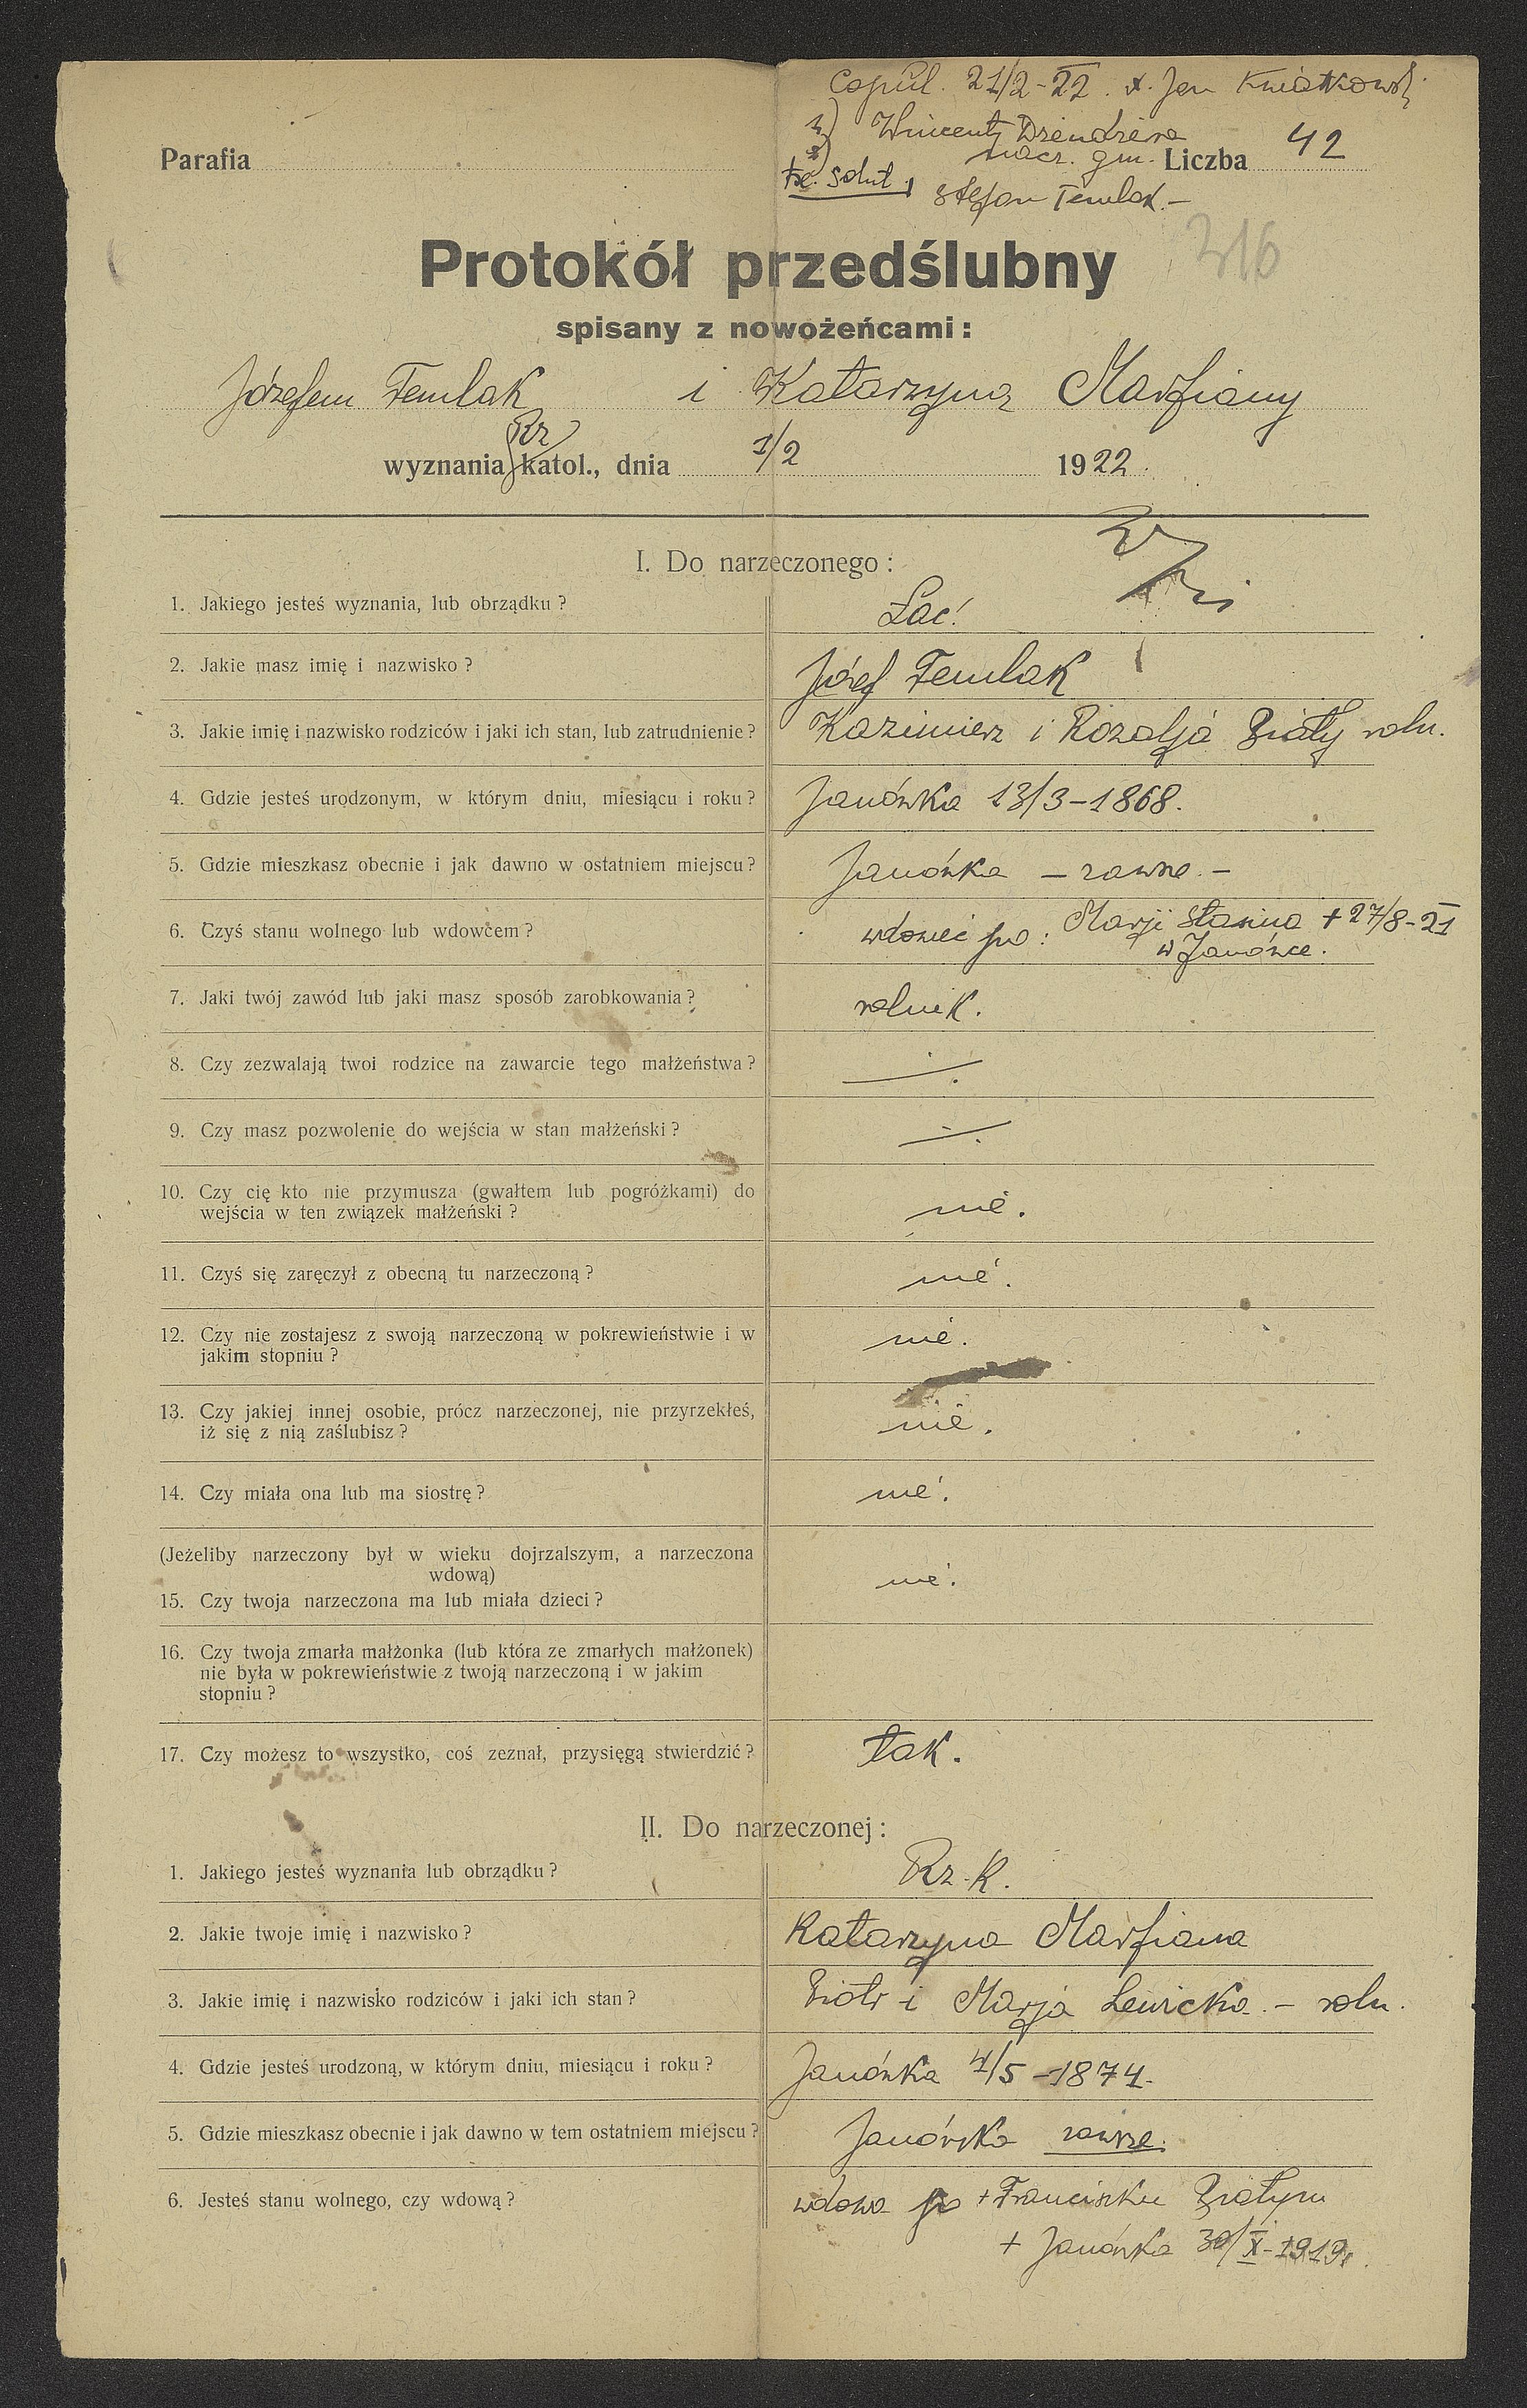 Copul. 21/2-22. x. Jan Kwiatkowski
Wincenty Dziendziera
nacz. gm.
Parafia
Liczba 42
Stefan Temlak.-
316
Protokół przedślubny
spisany z nowożeńcami:
Józefem Temlak i Katarzyną Marfiany
wyznania Rz katol., dnia 1/2 1922.
I. Do narzeczonego:
1. Jakiego jesteś wyznania, lub obrządku? Łać.
2. Jakie masz imię i nazwisko? Józef Temlak
3. Jakie imię i nazwisko rodziców i jaki ich stan, lub zatrudnienie? Kazimierz i Rozalja Biały roln.
4. Gdzie jesteś urodzonym, w którym dniu, miesiącu i roku? Janówka 13/3-1868.
5. Gdzie mieszkasz obecnie i jak dawno w ostatniem miejscu? Janówka - zawsze.-
6. Czyś stanu wolnego lub wdowcem? wdowiec po: Marji Stasina + 27/8-21
w Janówce.
7. Jaki twój zawód lub jaki masz sposób zarobkowania? rolnik.
8. Czy zezwalają twoi rodzice na zawarcie tego małżeństwa? ·/.
9. Czy masz pozwolenie do wejścia w stan małżeński? ·/.
10. Czy cię kto nie przymusza (gwałtem lub pogróżkami) do
wejścia w ten związek małżeński? nie.
11. Czyś się zaręczył z obecną tu narzeczoną? nie.
12. Czy nie zostajesz z swoją narzeczoną w pokrewieństwie i w
jakim stopniu? nie.
13. Czy jakiej innej osobie, prócz narzeczonej, nie przyrzekłeś,
iż się z nią zaślubisz? nie.
14. Czy miała ona lub ma siostrę? nie.
(Jeżeliby narzeczony był w wieku dojrzalszym, a narzeczona
wdową)
15. Czy twoja narzeczona ma lub miała dzieci? nie.
16. Czy twoja zmarła małżonka (lub która ze zmarłych małżonek)
nie była w pokrewieństwie z twoją narzeczoną i w jakim
stopniu?
17. Czy możesz to wszystko, coś zeznał, przysięgą stwierdzić? tak.
II. Do narzeczonej:
1. Jakiego jesteś wyznania lub obrządku? Rz. K.
2. Jakie twoje imię i nazwisko? Katarzyna Marfiana
3. Jakie imię i nazwisko rodziców i jaki ich stan? Piotr i Marja Lewicka - roln.
4. Gdzie jesteś urodzoną, w którym dniu, miesiącu i roku? Janówka 4/5-1874.
5. Gdzie mieszkasz obecnie i jak dawno w tem ostatniem miejscu? Janówka zawsze.
6. Jesteś stanu wolnego, czy wdową? wdowa po + Franciszku Białym
+ Janówka 30/X-1919.